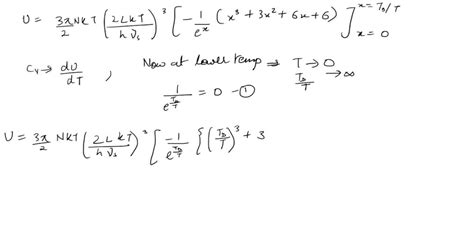 U = 3π/2 NkT (2LkT/hν_s)^3 [ -1/e^x (x^3 + 3x^2 + 6x + 6) ]_{x=0}^{x=T_D/T}
C_v → dU/dT , Now at lower temp ⇒ T → 0
T_D/T → ∞
1/e^{T_D/T} = 0 - ①
U = 3π/2 NkT (2LkT/hν_s)^3 [ -1/e^{T_D/T} { (T_D/T)^3 + 3